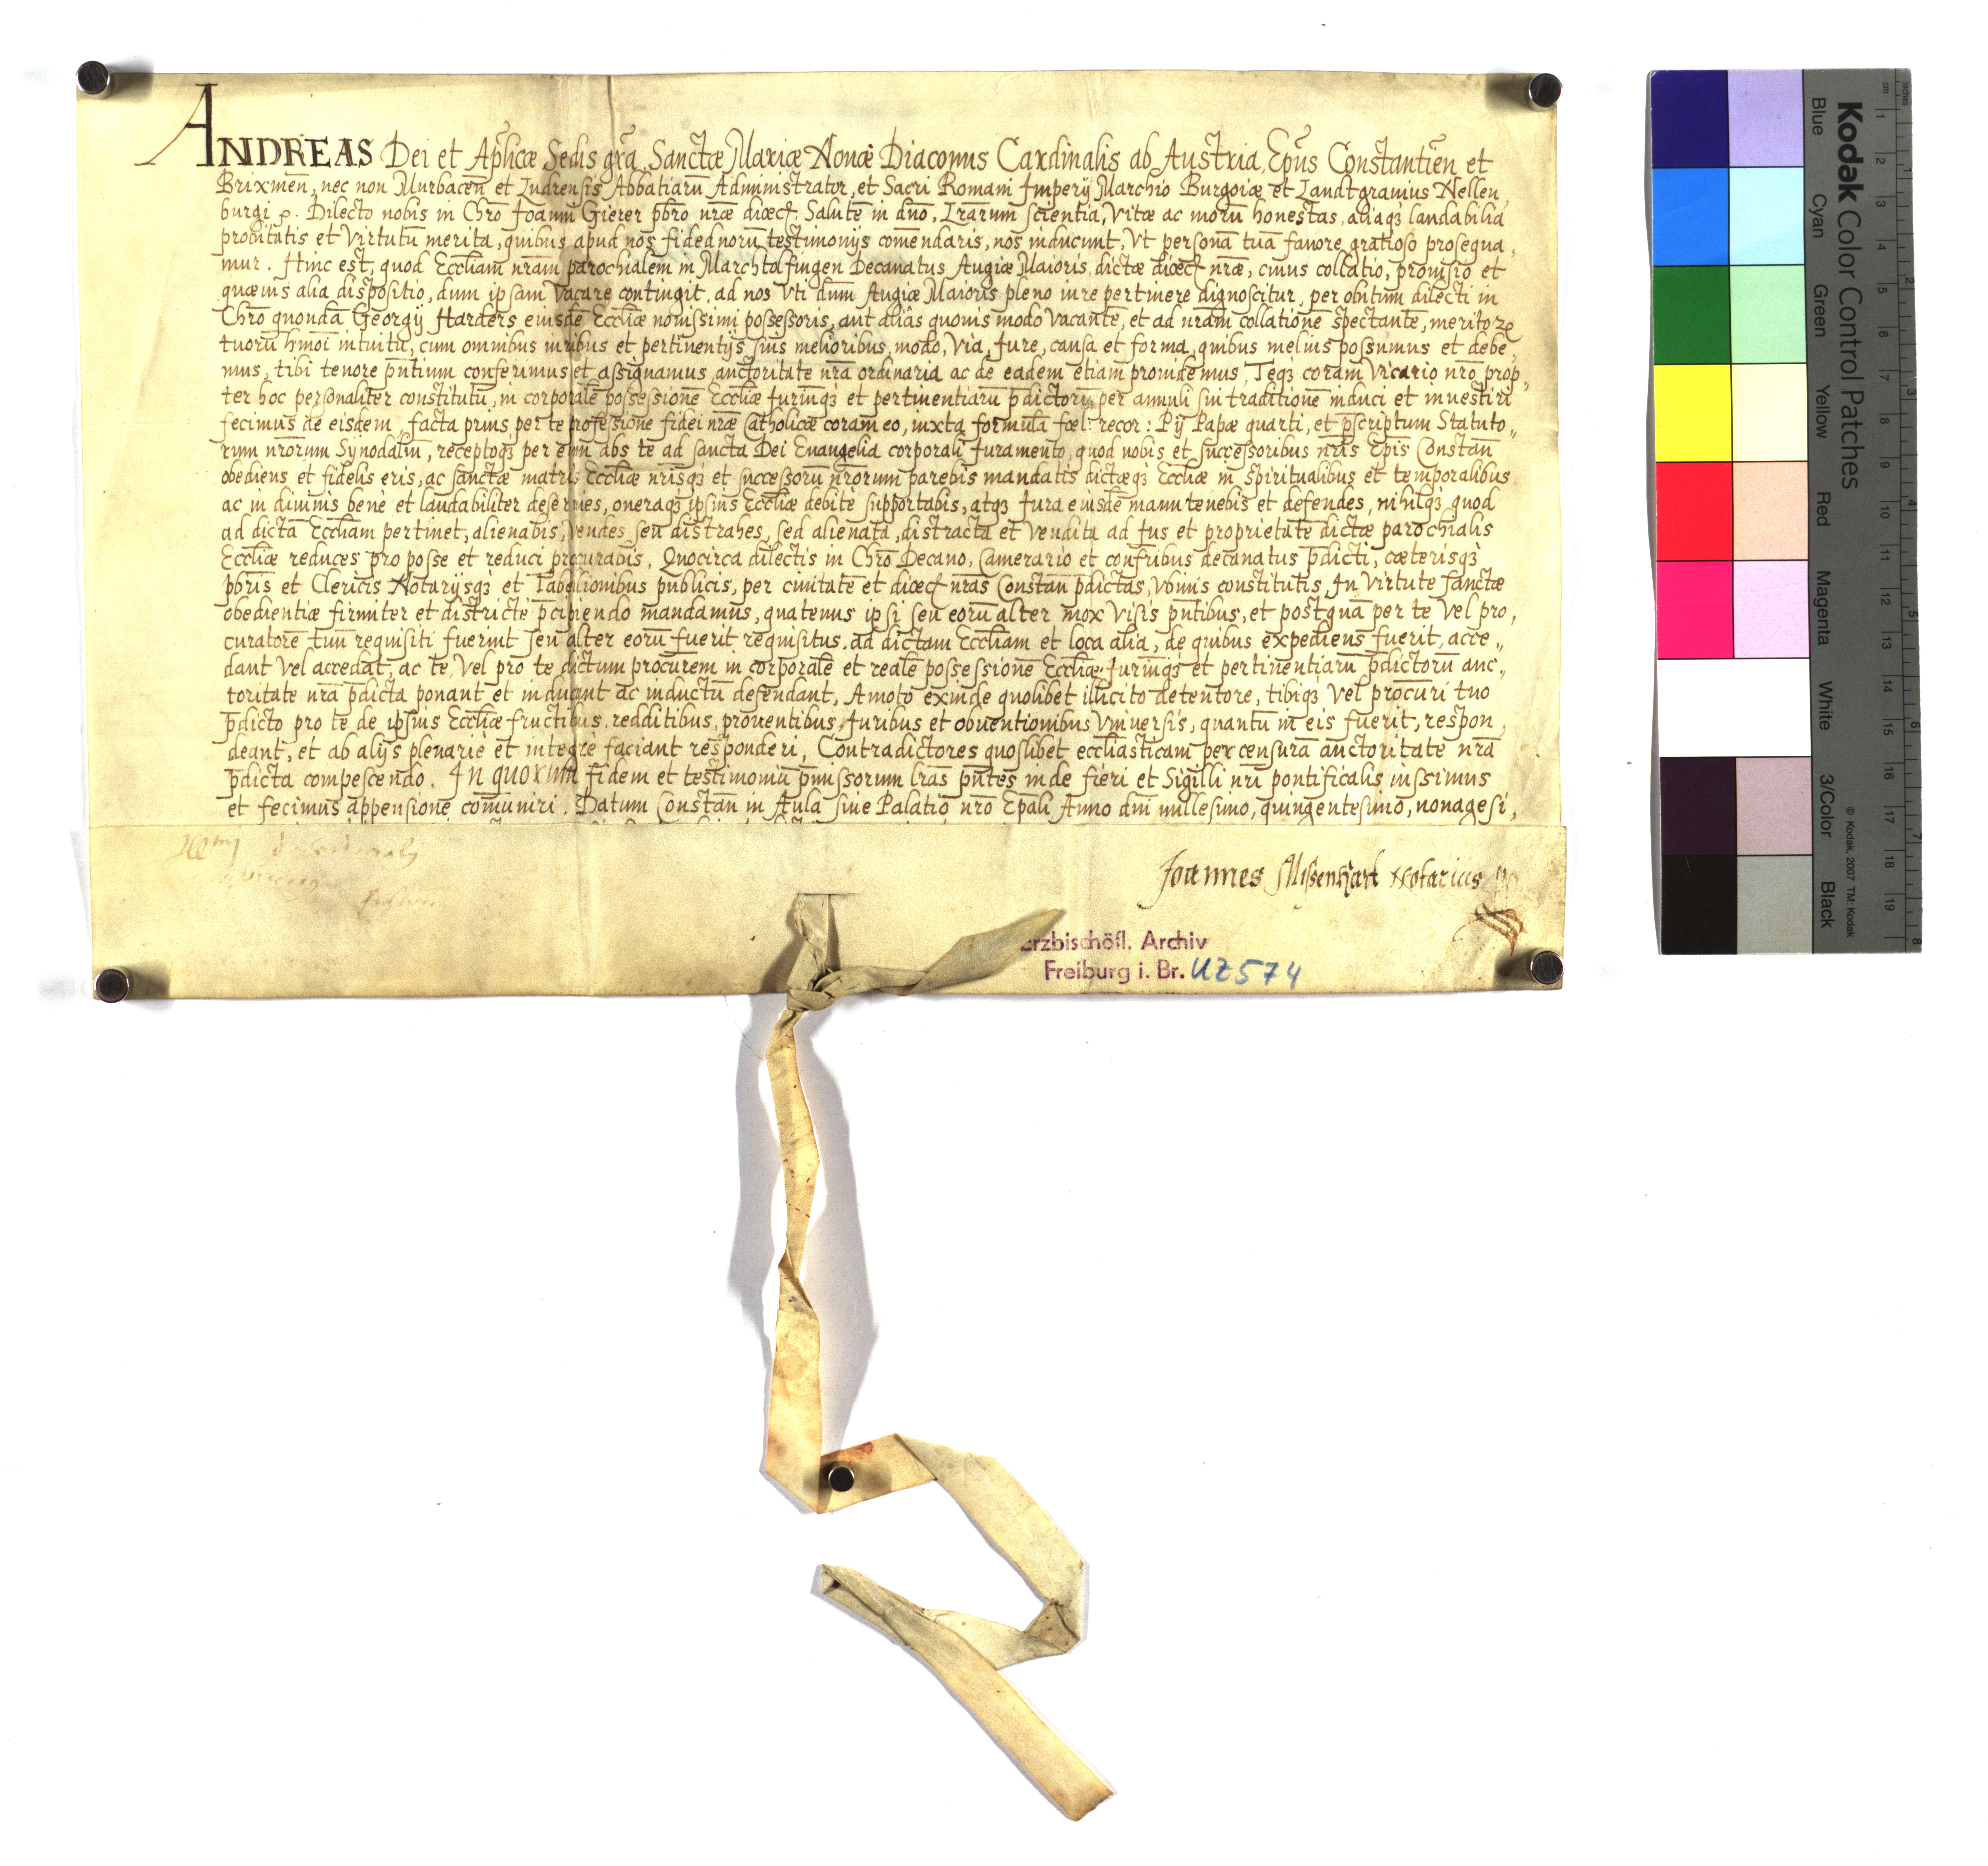 ANDREAS Dei et Aplicæ Sedis gra, Sanctæ Mariæ Nouæ Diaconus Cardinalis ab Austria, Epus Constantien et
Brixmen, nec non Murbacen et Ludrensis Abbatiaru Administrator, et Sacri Romani Imperij Marchio Burgoiæ et Landtgrauius Nellen,
burgi ꝛ. Dilecto nobis in Chro Joanni Gierer pbro nræ diœc. Salute in dno. Lrarum scientia, vitæ ac moru honestas, aliaqȝ laudabilia
probitatis et virtutu merita, quibus apud nos fidedignoru testimonijs comendaris, nos inducunt, vt persona tua fauore gratioso prosequa,
mur. Hinc est, quod Eccliam nram parochialem in Marchtolfingen Decanatus Augiæ Maioris, dictæ diœc nræ, cuius collatio, prouisio et
quæuis alia dispositio, dum ipsam vacare contingit, ad nos vti dum Augiæ Maioris pleno iure pertinere dignoscitur, per obitum dilecti in
Chro quonda Georgij Harders eiusde Eccliæ nouissimi possessoris, aut aliâs quouis modo vacante, et ad nram collatione spectante, meritoꝝ
tuoru hmoi intuitu, cum omnibus iuribus et pertinentijs suis melioribus, modo, via, Jure, causa et forma, quibus melius possumus et debe,
mus, tibi tenore pntium conferimus et assignamus auctoritate nra ordinaria ac de eadem etiam prouidemus, Teqȝ coram Vicario nro prop,
ter hoc personaliter constitutu, in corporale possessione Eccliæ Juriuqȝ et pertinentiaru pdictoru per annuli sui traditione induci et inuestiri
fecimus de eisdem, facta prius per te professione fidei nræ Catholicæ coram eo, iuxta formula fœl: recor: Pij Papæ quarti, et pscriptum Statuto,,
rum nrorum Synodaliu, receptoqȝ per eum abs te ad sancta Dei Euangelia corporali Juramento, quod nobis et successoribus nris Epis Constan
obediens et fidelis eris, ac sanctæ matris Eccliæ nrisqȝ et successoru nrorum parebis mandatis dictæqȝ Eccliæ in spiritualibus et temporalibus
ac in diuinis benè et laudabiliter deseruies, oneraqȝ ipsius Eccliæ debitè supportabis, atqȝ Jura eiusde manutenebis et defendes, nihilqȝ quod
ad dicta Eccliam pertinet, alienabis, vendes seu distrahes, sed alienata, distracta et vendita ad Jus et proprietate dictæ parochialis
Eccliæ reduces pro posse et reduci procurabis. Quocirca dilectis in Chro Decano, Camerario et confribus decanatus pdicti, cæterisqȝ
pbris et Clericis Notarijsqȝ et Tabellionibus publicis, per ciuitate et diœc nras Constan pdictas, vbiuis constitutis, In virtute sanctæ
obedientiæ firmiter et districtè pcipiendo mandamus, quatenus ipsi seu eoru alter mox visis pntibus, et postqua per te vel pro,
curatore tuu requisiti fuerint seu alter eoru fuerit requisitus, ad dictam Eccliam et loca alia, de quibus expediens fuerit, acce,,
dant vel accedat, ac te, vel pro te dictum procurem in corporale et reale possessione Eccliæ Juriuqȝ et pertinentiaru pdictoru auc,,
toritate nra pdicta ponant et inducant ac inductu defendant, Amoto exinde quolibet illicito detentore, tibiqȝ vel procuri tuo
pdicto pro te de ipsius Eccliæ fructibus, redditibus, prouentibus, Juribus et obuentionibus vniuersis, quantu in eis fuerit, respon,
deant, et ab alijs plenariè et integrè faciant responderi, Contradictores quoslibet eccliasticam per censura auctoritate nra
pdicta compescendo. In quorum fidem et testimoniu pmissorum lras pntes inde fieri et Sigilli nri pontificalis iussimus
et fecimus appensione comuniri. Datum Constan in Aula siue Palatio nro Epali Anno dni millesimo, quingentesimo, nonagesi,
Joannes Missenhart Notarius
Erzbischöfl. Archiv
Freiburg i. Br. UZ 574
Kodak Color Control Patches
Blue Cyan Green Yellow Red Magenta White 3/Color Black
© Kodak, 2007 TM: Kodak
cm 1 2 3 4 5 6 7 8 9 10 11 12 13 14 15 16 17 18 19
inches 1 2 3 4 5 6 7 8